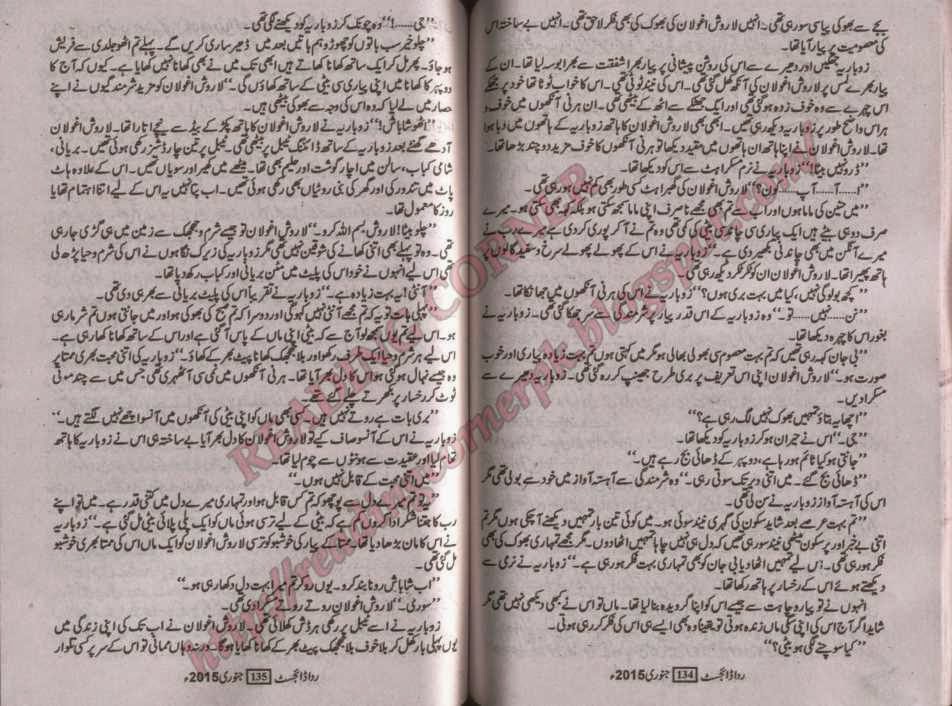 بجے سے بھوکی پیاسی سو رہی تھی۔ انہیں لاروش اغولان کی بھوک کی بھی فکر لاحق تھی۔ انہیں بے ساختہ اس
کی معصومیت پر پیار آیا تھا۔
زوباریہ جھکیں اور دھیرے سے اس کی روشن پیشانی پر پیار بھرا شفقت سے بھرا بوسہ لیا تھا۔ ان کے
پیار بھرے لمس پر لاروش اغولان کی آنکھ کھل گئی تھی۔ اس کی نیند ٹوٹی تھی۔ اس کا خواب ٹوٹا تھا خود پر جھکے
اس چہرے سے وہ خوف زدہ ہو گئی تھی اور ایک جھٹکے سے اٹھ کے بیٹھی تھی۔ ان ہرنی آنکھوں میں خوف و
ہراس واضح طور پر زوباریہ دیکھ رہی تھیں۔ ابھی بھی لاروش اغولان کا ہاتھ زوباریہ کے ہاتھوں میں دبا ہوا
تھا۔ لاروش اغولان نے اپنا ہاتھ ان ہاتھوں میں مقید دیکھا تو ہرنی آنکھوں کا خوف مزید دو چند بڑھا تھا۔
”ڈرو نہیں بیٹا!“ زوباریہ نے نرم مسکراہٹ سے اس کو دیکھا تھا۔
”ا۔۔۔۔آ۔۔۔۔ آپ۔۔۔۔ کون؟“ لاروش اغولان کی گھبراہٹ کسی طور بھی کم نہیں ہو رہی تھی۔
”میں متین کی ماما ہوں اور اب سے تم بھی مجھے نا صرف اپنی ماما سمجھ سکتی ہو بلکہ کہہ بھی سکتی ہو۔ میرے
صرف دو ہی بیٹے ہیں ایک پیاری سی چاند سی بیٹی کی کمی تھی وہ تم نے آ کر پوری کر دی ہے۔ میرے رب نے
میرے آنگن میں بھی چاندنی بکھیر دی ہے۔“ زوباریہ نے اس کے پھولے پھولے سرخ و سفید گالوں پر
ہاتھ پھیرا تھا۔ لاروش اغولان ان کو ٹکر ٹکر دیکھ رہی تھی۔
”کچھ بولو گی نہیں، کیا میں بہت بری ہوں؟“ زوباریہ نے اس کی ہرنی آنکھوں میں جھانکا تھا۔
”نن۔۔۔۔ نہیں۔۔۔۔ تو۔“ وہ زوباریہ کے اس قدر پیار پر شرمندگی سے سر جھکا گئی تھی۔ زوباریہ نے
بغور اس کا چہرہ دیکھا تھا۔
”بی جان کہہ رہی تھیں کہ تم بہت معصوم سی بھولی بھالی ہو مگر میں کہتی ہوں تم بہت زیادہ پیاری اور خوب
صورت ہو۔“ لاروش اغولان اپنی اس تعریف پر بری طرح جھینپ کر رہ گئی تھی۔ زوباریہ دھیرے سے
مسکرا دیں۔
”اچھا یہ بتاؤ تمہیں بھوک نہیں لگ رہی ہے؟“
”جی۔“ اس نے حیران ہو کر زوباریہ کو دیکھا تھا۔
”جانتی ہو کیا ٹائم ہو رہا ہے، دوپہر کے ڈھائی بج رہے ہیں۔“
”ڈھائی بج گئے۔ میں اتنی دیر تک سوتی رہی۔“ وہ شرمندگی سے آہستہ آواز میں خود سے بولی تھی مگر
اس کی آہستہ آواز زوباریہ نے سن لی تھی۔
”تم بہت عرصے بعد شاید سکون کی گہری نیند سوئی ہو۔ میں کوئی تین بار تمہیں دیکھنے آ چکی ہوں مگر تم
اتنی بے خبر اور پر سکون میٹھی نیند سو رہی تھیں کہ دل ہی نہیں چاہا تمہیں اٹھا دوں۔ مگر مجھے تمہاری بھوک کی بھی
فکر ہو رہی تھی۔ اس لیے تمہیں اٹھا دیا بی جان کو بھی تمہاری بہت فکر ہو رہی ہے۔“ زوباریہ نے نرمی سے
دیکھتے ہوئے اس کے رخسار پر ہاتھ رکھا تھا۔
انہوں نے تو پیار و چاہت سے جیسے اس کو اپنا گرویدہ بنا لیا تھا۔ ماں تو اس نے کبھی دیکھی نہیں تھی مگر
شاید اگر آج اس کی اپنی سگی ماں زندہ ہوتی تو یقیناً وہ بھی ایسے ہی اس کی فکر کر رہی ہوتی۔
”کیا سوچنے لگی ہو بیٹی؟“
ردا ڈائجسٹ 134 جنوری 2015ء
”جی۔۔۔۔!“ وہ چونک کر زوباریہ کو دیکھنے لگی تھی۔
”چلو خیر سب باتوں کو چھوڑو ہم باتیں بعد میں ڈھیر ساری کریں گے۔ پہلے تم اٹھو جلدی سے فریش
ہو جاؤ۔ پھر مل کر ایک ساتھ کھانا کھاتے ہیں ابھی تک میں نے بھی کھانا نہیں کھایا ہے۔ کیوں کہ آج کا
دوپہر کا کھانا میں اپنی پیاری سی بیٹی کے ساتھ کھاؤں گی۔“ لاروش اغولان کو مزید شرمندگیوں نے اپنے
حصار میں لے لیا کہ وہ اس کی وجہ سے بھوکی بیٹھی ہیں۔
”اٹھو شاباش!“ زوباریہ نے لاروش اغولان کا ہاتھ پکڑ کے بیڈ سے نیچے اتارا تھا۔ لاروش اغولان
آدھے گھنٹے بعد زوباریہ کے ساتھ ڈائننگ ٹیبل پر بیٹھی تھی۔ ٹیبل پر تین چار ڈشز رکھی ہوئی تھیں۔ بریانی،
شامی کباب، سالن میں اچار گوشت اور حلیم بھی تھا۔ میٹھے میں کھیر اور سویاں تھیں۔ اس کے علاوہ ہاٹ
پاٹ میں تندور کی اور گھر کی بنی روٹیاں بھی رکھی ہوئی تھیں۔ اب پتا نہیں یہ اس کے لیے اتنا اہتمام تھا یا
روز کا معمول تھا۔
”چلو بیٹا! لاروش بسم اللہ کرو۔“ لاروش اغولان تو جیسے شرم و جھجک سے زمین میں ہی گڑی جا رہی
تھی۔ وہ تو پہلے بھی اتنی کھانے کی شوقین نہیں تھی مگر زوباریہ کی زیرک نگاہوں نے اس کی شرم و حیا پڑھ لی
تھی اس لیے انہوں نے خود اس کی پلیٹ میں مٹن بریانی اور کباب رکھ دیا تھا۔
”آنٹی! یہ بہت زیادہ ہے۔“ زوباریہ نے تقریباً اس کی پلیٹ بریانی سے بھر ہی دی تھی۔
”پہلی بات تو یہ کہ تم مجھے آنٹی نہیں کہو گی اور دوسرا کہ تم صبح کی بھوکی ہو اور میں جانتی ہوں تم شرما رہی
ہو۔ اس لیے تم یوں سمجھ لو آج سے کہ بیٹی اپنی ماں کے پاس آ گئی ہے اور اس کے ساتھ کھانا کھا رہی ہے۔
اس لیے ہر شرم و حیا ایک طرف رکھو اور بلا جھجک کھانا پیٹ بھر کے کھاؤ۔“ زوباریہ کی اتنی محبت بھری ممتا پر
وہ جیسے نہال ہو گئی ہو اس کا دل بھر آیا تھا۔ ہرنی آنکھوں میں نمی سی آ ٹھہری تھی جس میں سے چند موتی
ٹوٹ کر رخسار پر بکھرتے چلے گئے تھے۔
”بری بات ہے روتے نہیں ہیں۔ کسی بھی ماں کو اپنی بیٹی کی آنکھوں میں آنسو اچھے نہیں لگتے ہیں۔“
زوباریہ نے اس کے آنسو صاف کیے تو لاروش اغولان کا دل بھر آیا بے ساختہ ہی اس نے زوباریہ کا ہاتھ
تھام لیا اور عقیدت سے ہونٹوں سے چوم لیا تھا۔
”میں اتنی محبت کے قابل نہیں ہوں۔“
”یہ تو تم میرے دل سے پوچھو کہ تم کس قابل ہو اور تمہاری میرے دل میں کتنی قدر ہے۔ میں تو اپنے
رب کا جتنا شکر ادا کروں کم ہے کہ بیٹی کے لیے ترسی ہوئی ماں کو ایک پلی پلائی بیٹی مل گئی ہے۔“ زوباریہ
نے اس کا مان بڑھا دیا تھا۔ ممتا کے پیار کی خوشبو کو ترسی لاروش اغولان کو ایک ماں اس کی ممتا بھری خوشبو
مل گئی تھی۔
”اب شاباش رونا بند کرو۔ یوں رو کر تم میرا بہت دل دکھا رہی ہو۔“
”سوری۔“ لاروش اغولان روتے روتے مسکرا دی تھی۔
زوباریہ نے اسے ٹیبل پر رکھی ہر ڈش کھلائی تھی۔ لاروش اغولان نے اب تک کی اپنی زندگی میں
یوں پہلی بار کھل کر بلا خوف بلا جھجک پیٹ بھر کے کھانا کھایا ہوگا۔ ورنہ وہاں ممانی تو اس کے سر پر کسی تلوار
ردا ڈائجسٹ 135 جنوری 2015ء
READING CORNER
http://readingcornerpk.blogspot.com/